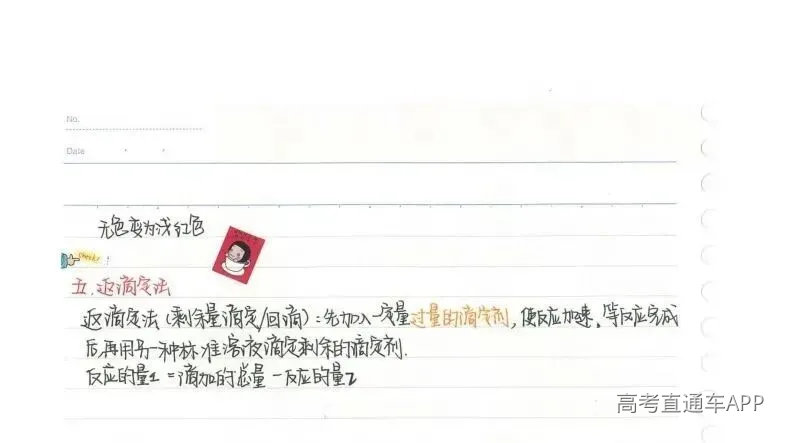 No.
Date
无色变为浅红色
check!
五.返滴定法
返滴定法(剩余量滴定/回滴):先加入一定量过量的滴定剂,使反应加速,等反应完成
后,再用另一种标准溶液滴定剩余的滴定剂.
反应的量1=滴加的总量-反应的量2
高考直通车APP